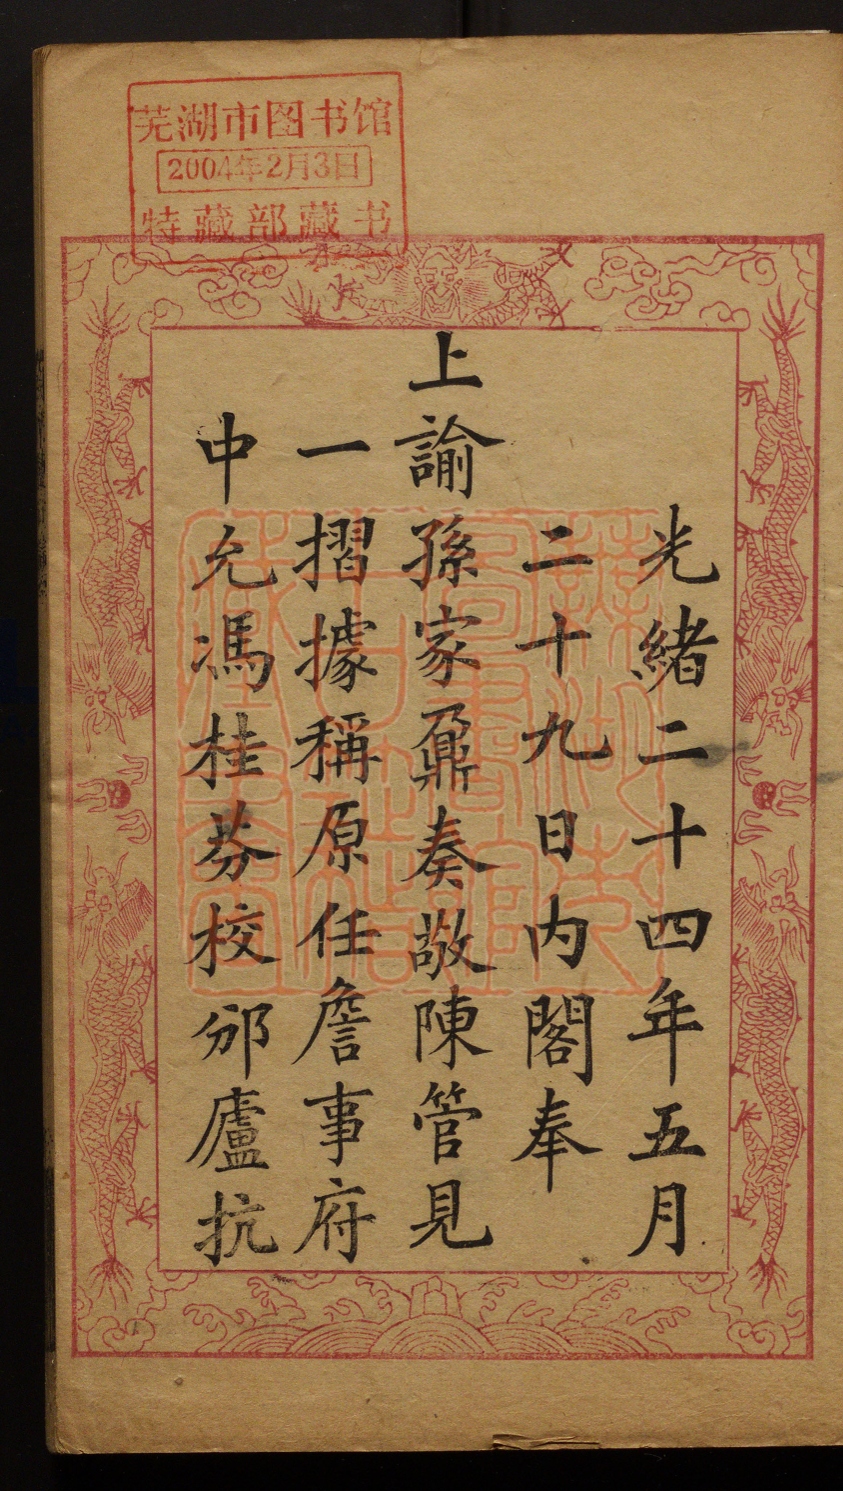 芜湖市图书馆
2004年2月3日
特藏部藏书
光緒二十四年五月
二十九日内閣奉
上諭孫家鼐奏敬陳管見
一摺據稱原任詹事府
中允馮桂芬校邠廬抗